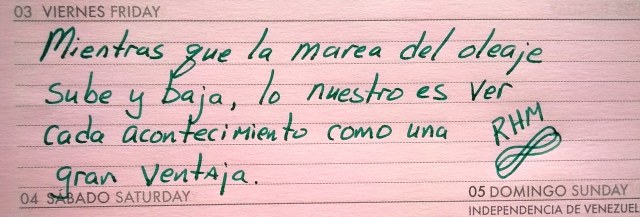 03 VIERNES FRIDAY
Mientras que la marea del oleaje
sube y baja, lo nuestro es ver
cada acontecimiento como una
gran ventaja.
RHM
04 SÁBADO SATURDAY
05 DOMINGO SUNDAY
INDEPENDENCIA DE VENEZUEL